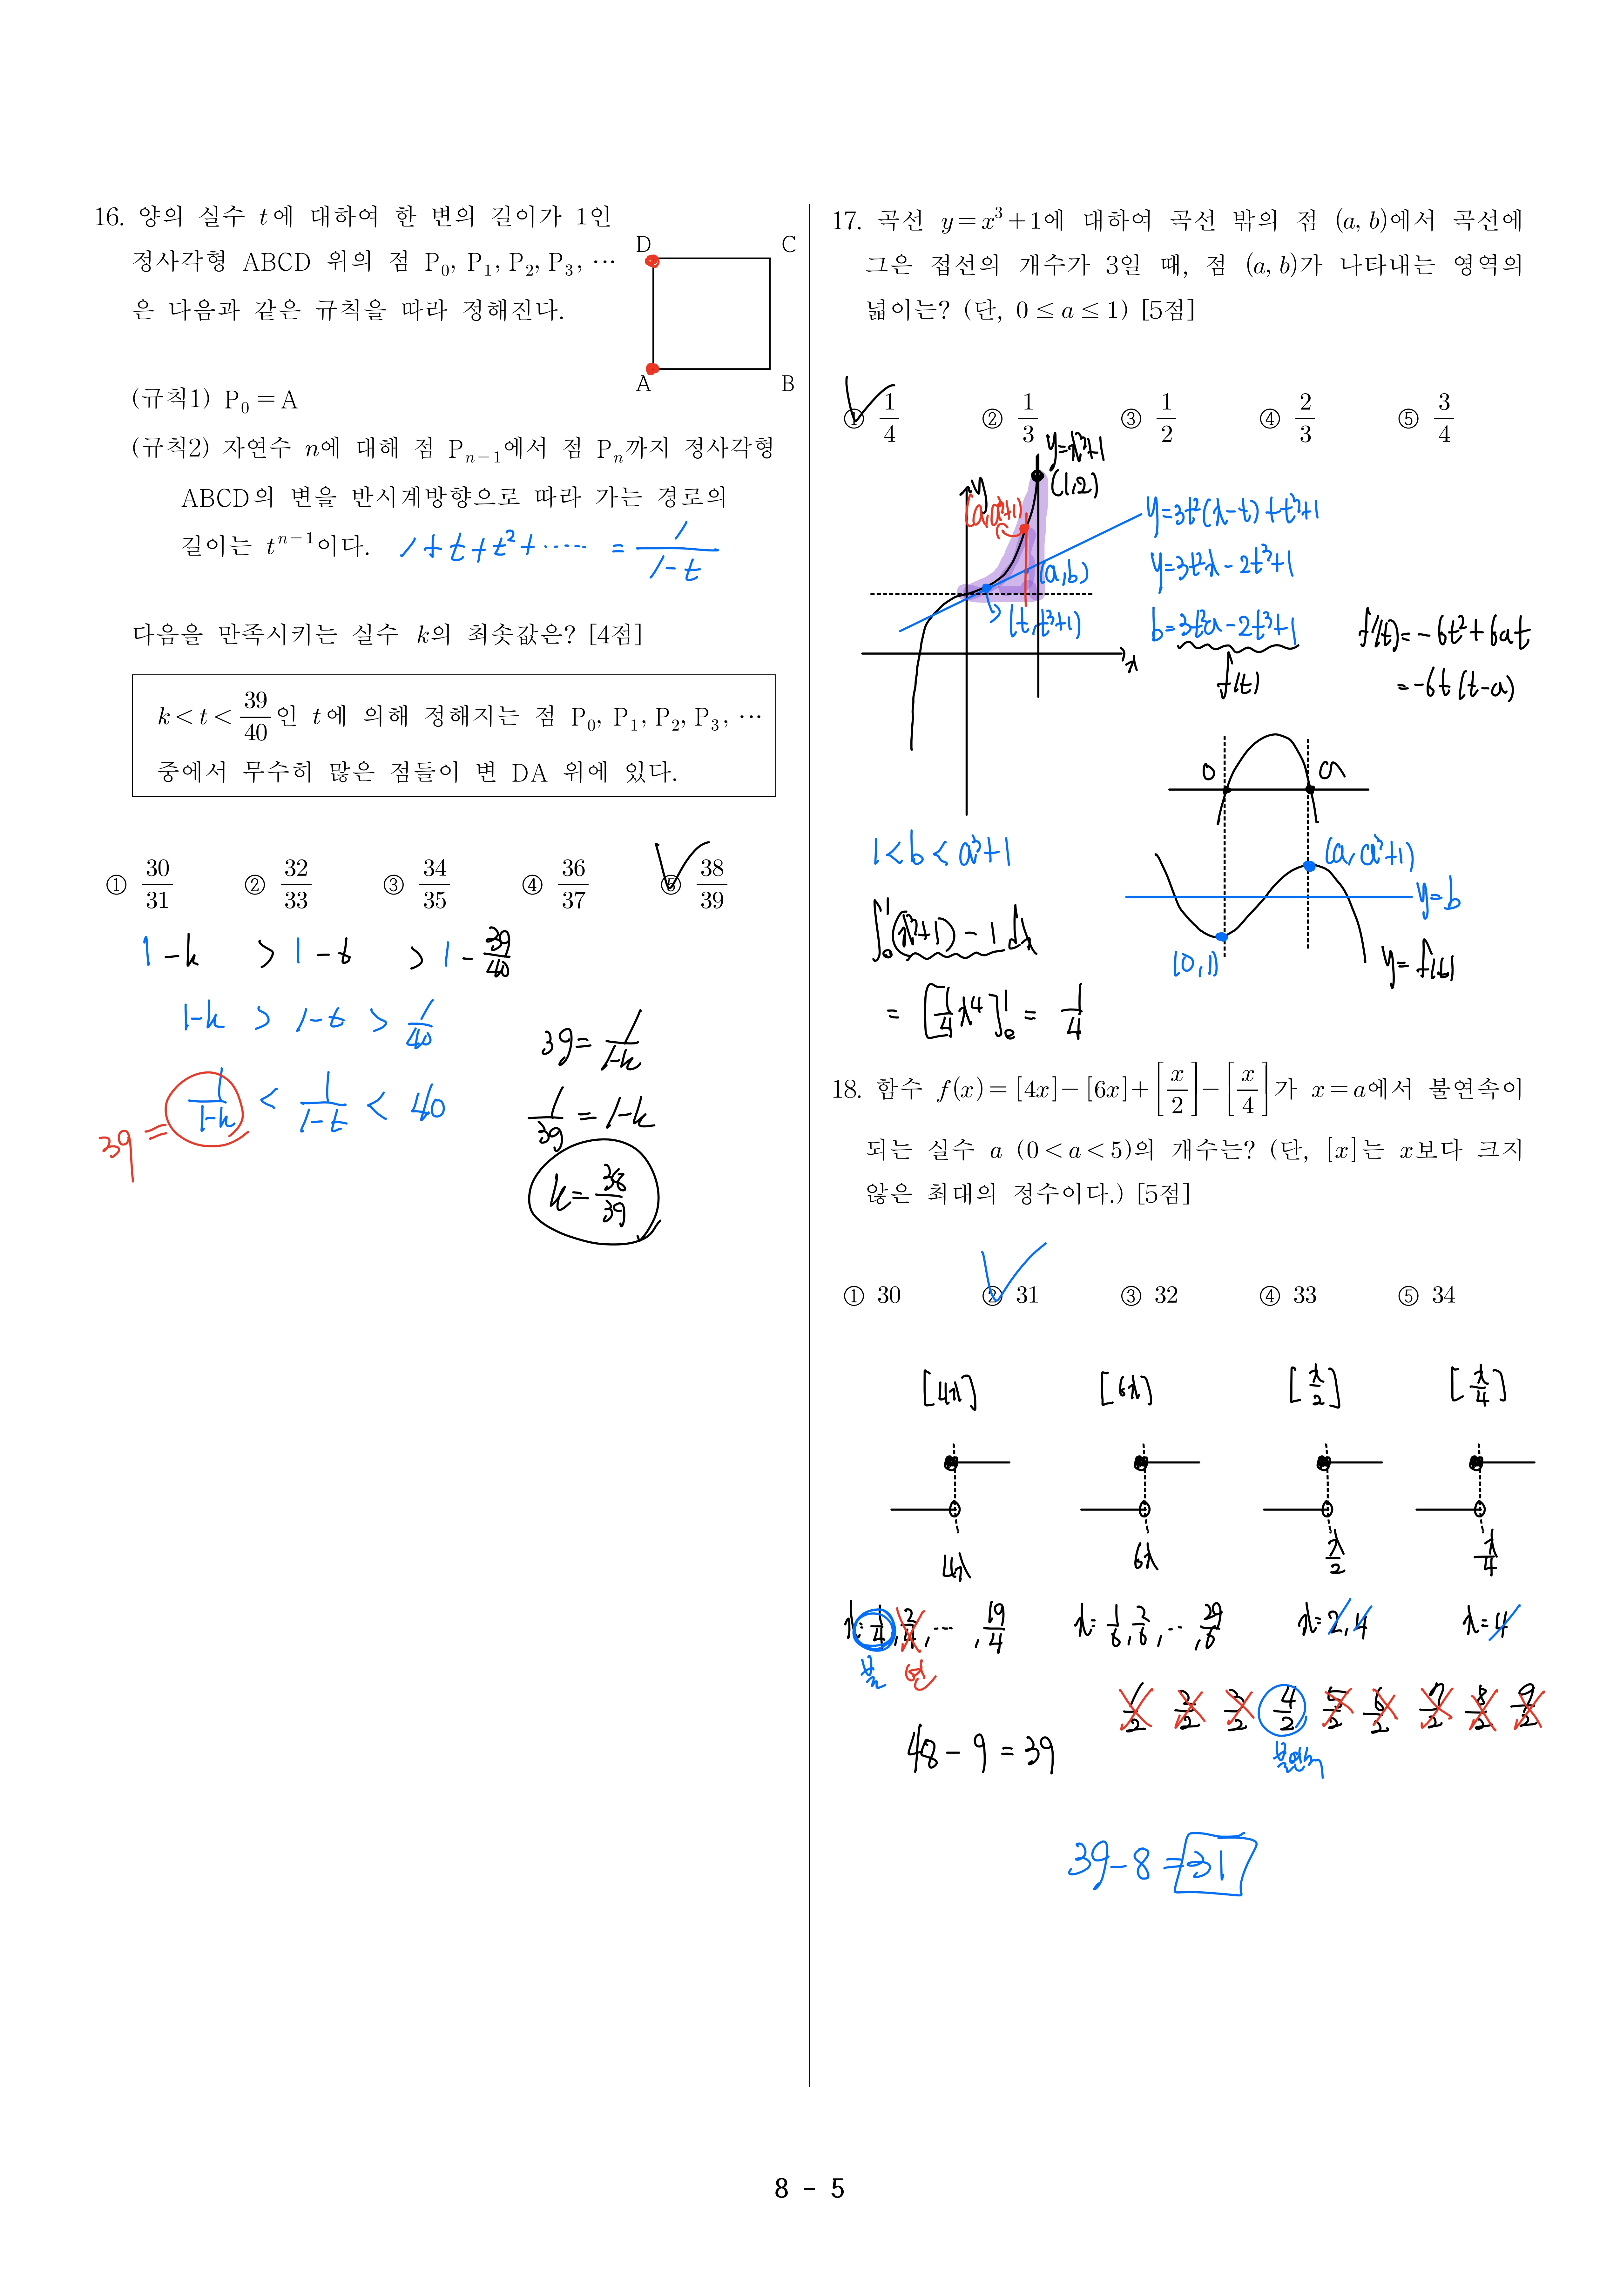 16. 양의 실수 t에 대하여 한 변의 길이가 1인
정사각형 ABCD 위의 점 P₀, P₁, P₂, P₃, ⋯
은 다음과 같은 규칙을 따라 정해진다.
D C
A B
(규칙1) P₀ = A
(규칙2) 자연수 n에 대해 점 Pₙ₋₁에서 점 Pₙ까지 정사각형
ABCD의 변을 반시계방향으로 따라 가는 경로의
길이는 tⁿ⁻¹이다. 1+t+t²+⋯⋯ = 1/(1-t)
다음을 만족시키는 실수 k의 최솟값은? [4점]
k < t < 39/40인 t에 의해 정해지는 점 P₀, P₁, P₂, P₃, ⋯
중에서 무수히 많은 점들이 변 DA 위에 있다.
① 30/31 ② 32/33 ③ 34/35 ④ 36/37 ⑤ 38/39
1-k > 1-t > 1-39/40
1-k > 1-t > 1/40
39 = 1/(1-k) < 1/(1-t) < 40
39 = 1/(1-k)
1/39 = 1-k
k = 38/39
17. 곡선 y=x³+1에 대하여 곡선 밖의 점 (a, b)에서 곡선에
그은 접선의 개수가 3일 때, 점 (a, b)가 나타내는 영역의
넓이는? (단, 0 ≤ a ≤ 1) [5점]
① 1/4 ② 1/3 ③ 1/2 ④ 2/3 ⑤ 3/4
y=x³+1
y
(1,2)
(a,a³+1)
(a,b)
(t,t³+1)
x
y=3t²(x-t)+t³+1
y=3t²x-2t³+1
b=3t²a-2t³+1
f(t)
f'(t)=-6t²+6at
=-6t(t-a)
0 a
(a,a³+1)
y=b
(0,1)
y=f(t)
1<b<a³+1
∫₀¹(x³+1)-1dx
= [1/4 x⁴]₀¹ = 1/4
18. 함수 f(x)=[4x]-[6x]+[x/2]-[x/4]가 x=a에서 불연속이
되는 실수 a (0<a<5)의 개수는? (단, [x]는 x보다 크지
않은 최대의 정수이다.) [5점]
① 30 ② 31 ③ 32 ④ 33 ⑤ 34
[4x] [6x] [x/2] [x/4]
4x 6x x/2 x/4
x=1/4, 2/4, ⋯, 19/4 x=1/6, 2/6, ⋯, 29/6 x=2,4 x=4
불 연
1/2 2/2 3/2 4/2 5/2 6/2 7/2 8/2 9/2
불연속
48-9=39
39-8=31
8 - 5